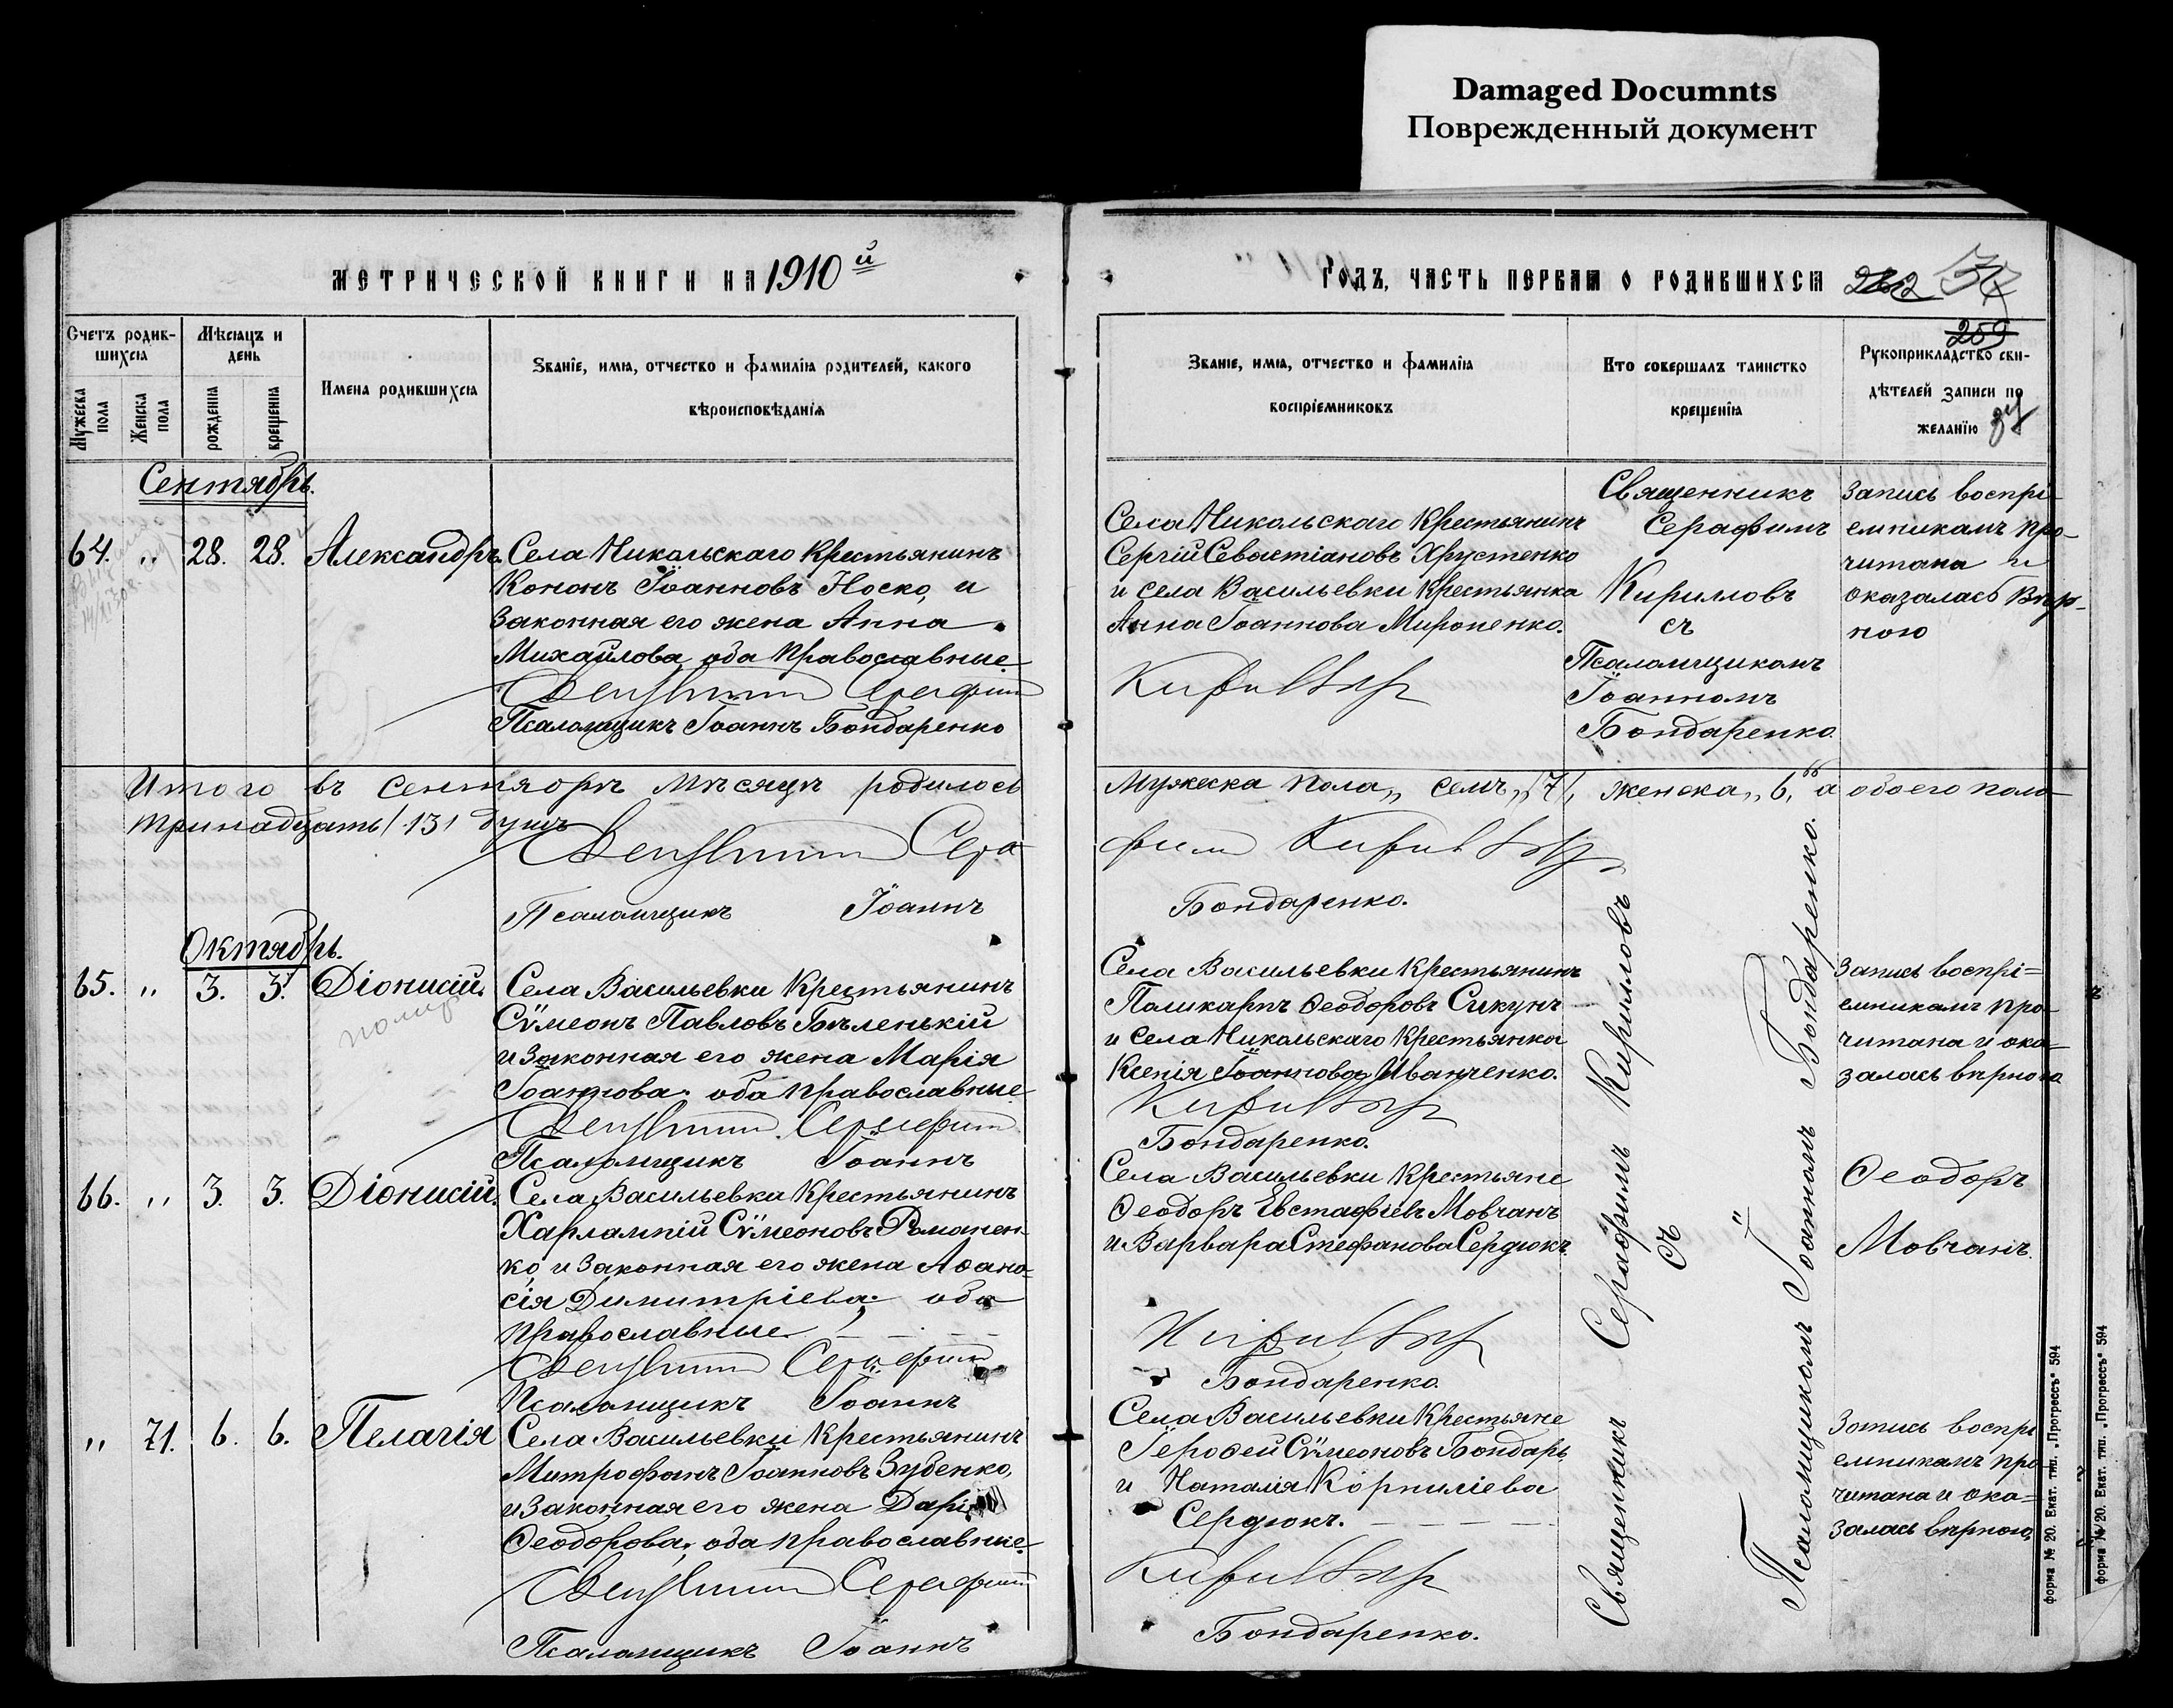 Damaged Documnts
Поврежденный документ
МЕТРИЧЕСКОЙ КНИГИ НА 1910й
ГОДЪ, ЧАСТЬ ПЕРВАЯ О РОДИВШИХСЯ
262
259
Счетъ родив-
шихся
Мужеска пола
Женска пола
Мѣсяцъ и
день
рожденія
крещенія
Имена родившихся
Званіе, имя, отчество и фамилія родителей, какого
вѣроисповѣданія
Званіе, имя, отчество и фамилія
воспріемниковъ
Кто совершалъ таинство
крещенія
Рукоприкладство сви-
дѣтелей записи по
желанію
Сентябрь.
64. " 28. 28. Александръ.
Села Никольскаго крестьянинъ
Кононъ Іоанновъ Носко, и
законная его жена Анна
Михайлова, оба православные.
Священникъ Серафимъ
Псаломщикъ Іоаннъ Бондаренко
Села Никольскаго крестьянинъ
Сергій Севастіановъ Хрустенко
и села Васильевки крестьянка
Анна Іоаннова Мироненко.
Кирилловъ
Священникъ
Серафимъ
Кирилловъ
съ
Псаломщикомъ
Іоанномъ
Бондаренко.
Запись воспрі-
емникамъ про-
читана и
оказалась вѣр-
ною
Итого въ сентябрѣ мѣсяцѣ родилось
мужеска пола „ семь „ /7/, женска „ 6, " а обоего пола
тринадцать /13/ душъ
Священникъ Сера
фимъ Кирилловъ
Псаломщикъ Іоаннъ
Бондаренко.
Октябрь.
65. " 3. 3. Діонисій.
Села Васильевки крестьянинъ
Сѵмеонъ Павловъ Бѣленькій
и законная его жена Марія
Іоаннова. оба православные
Священникъ Серафимъ
Псаломщикъ Іоаннъ
Села Васильевки крестьянинъ
Поликарпъ Ѳеодоровъ Сикунъ
и села Никольскаго крестьянка
Ксенія Іоаннова Иванченко.
Кирилловъ
Бондаренко.
Запись воспрі=
емникамъ про-
читана и ока-
залась вѣрною
66. " 3. 3. Діонисій.
Села Васильевки крестьянинъ
Харлампій Сѵмеоновъ Романен-
ко, и законная его жена Аѳана-
сія Димитріева; оба
православные.
Священникъ Серафимъ
Псаломщикъ Іоаннъ
Села Васильевки крестьяне
Ѳеодоръ Евстафіевъ Мовчанъ
и Варвара Стефанова Сердюкъ
Кирилловъ
Бондаренко
Ѳеодоръ
Мовчанъ.
" 71. 6. 6. Пелагія
Села Васильевки крестьянинъ
Митрофанъ Іоанновъ Зубенко,
и законная его жена Дарія
Ѳеодорова, оба православные.
Священникъ Серафимъ
Псаломщикъ Іоаннъ
Села Васильевки крестьяне
Іероѳей Сѵмеоновъ Бондарь
и Наталія Корниліева
Сердюкъ.
Кирилловъ
Бондаренко.
Запись воспрі
емникамъ про
читана и ока=
залась вѣрною
Священникъ Серафимъ Кирилловъ
съ
Псаломщикомъ Іоанномъ Бондаренко.
форма № 20. Екат. тип. „Прогрессъ" 594
форма № 20. Екат. тип. „Прогрессъ" 594